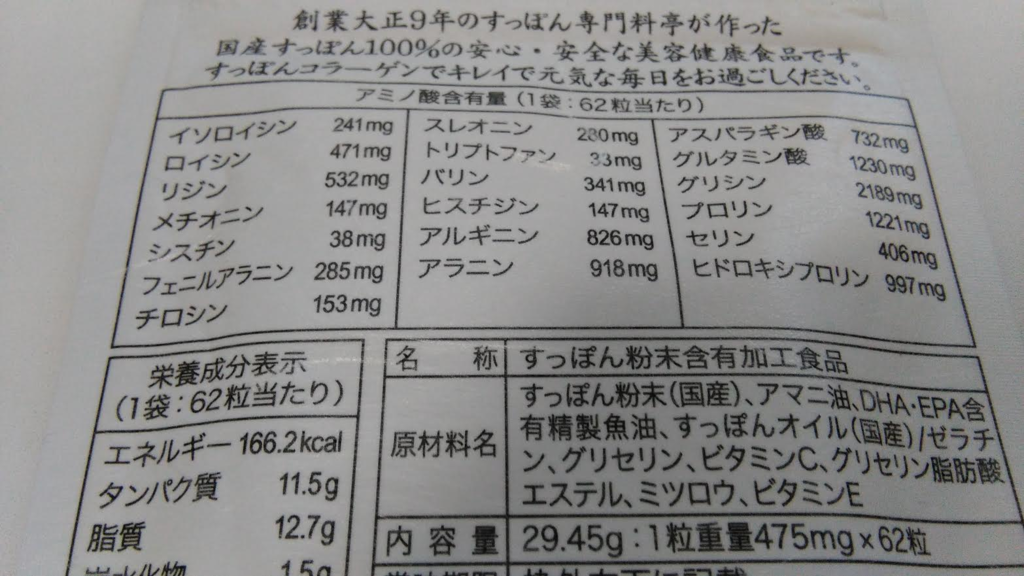 創業大正9年のすっぽん専門料亭が作った
国産すっぽん100%の安心・安全な美容健康食品です。
すっぽんコラーゲンでキレイで元気な毎日をお過ごしください。
アミノ酸含有量(1袋:62粒当たり)
イソロイシン 241mg
ロイシン 471mg
リジン 532mg
メチオニン 147mg
シスチン 38mg
フェニルアラニン 285mg
チロシン 153mg
スレオニン 280mg
トリプトファン 33mg
バリン 341mg
ヒスチジン 147mg
アルギニン 826mg
アラニン 918mg
アスパラギン酸 732mg
グルタミン酸 1230mg
グリシン 2189mg
プロリン 1221mg
セリン 406mg
ヒドロキシプロリン 997mg
栄養成分表示
(1袋:62粒当たり)
エネルギー 166.2kcal
タンパク質 11.5g
脂質 12.7g
炭水化物 1.5g
名称 すっぽん粉末含有加工食品
原材料名
すっぽん粉末(国産)、アマニ油、DHA・EPA含
有精製魚油、すっぽんオイル(国産)/ゼラチ
ン、グリセリン、ビタミンC、グリセリン脂肪酸
エステル、ミツロウ、ビタミンE
内容量 29.45g:1粒重量475mg×62粒